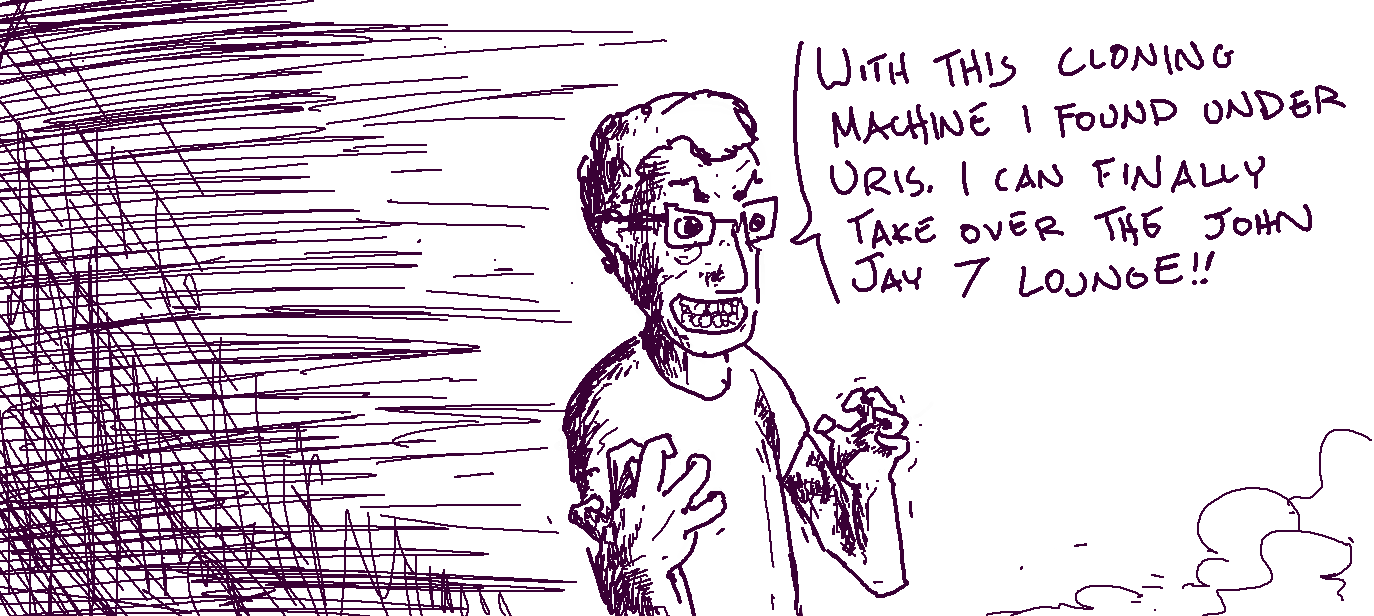 WITH THIS CLONING
MACHINE I FOUND UNDER
URIS. I CAN FINALLY
TAKE OVER THE JOHN
JAY 7 LOUNGE!!